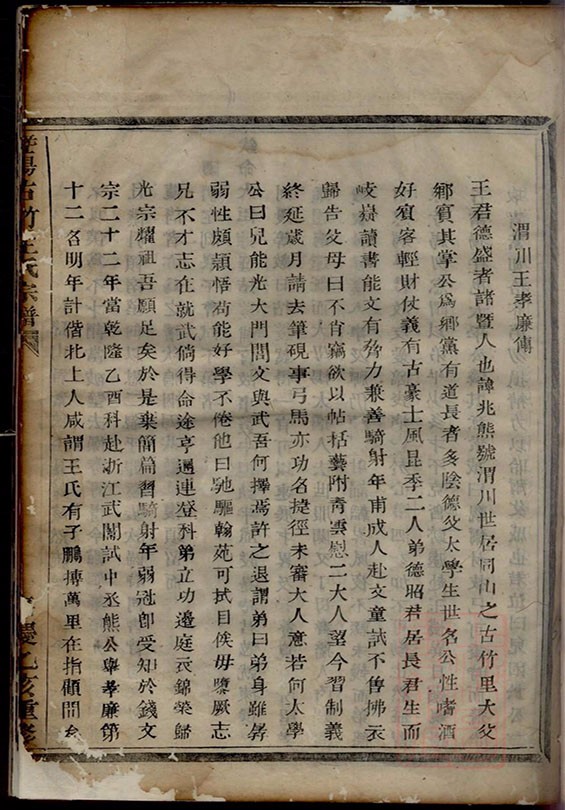 渭川王孝廉傳
王君德盛者諸暨人也諱兆熊號渭川世居同山之古竹里大父
鄉賓其掌公爲鄉黨有道長者多陰德父太學生世名公性嗜酒
好賓客輕財仗義有古豪士風昆季二人弟德昭君居長君生而
岐嶷讀書能文有膂力兼善騎射年甫成人赴文童試不售拂衣
歸告父母曰不肖竊欲以帖括藝附靑雲慰二大人望今習制義
終延歲月請去筆硯事弓馬亦功名捷徑未審大人意若何太學
公曰兒能光大門閭文與武吾何擇焉許之退謂弟曰弟身雖孱
弱性頗穎悟苟能好學不倦他日馳驅翰苑可拭目俟毋墮厥志
兄不才志在就武倘得命途亨通連登科第立功邊庭衣錦榮歸
光宗耀祖吾願足矣於是棄簡篇習騎射年弱冠卽受知於錢文
宗二十二年當乾隆乙酉科赴浙江武闈試中丞熊公舉孝廉第
十二名明年計偕北上人咸謂王氏有子鵬摶萬里在指顧間矣
暨陽古竹王氏宗譜
慶乙亥重修